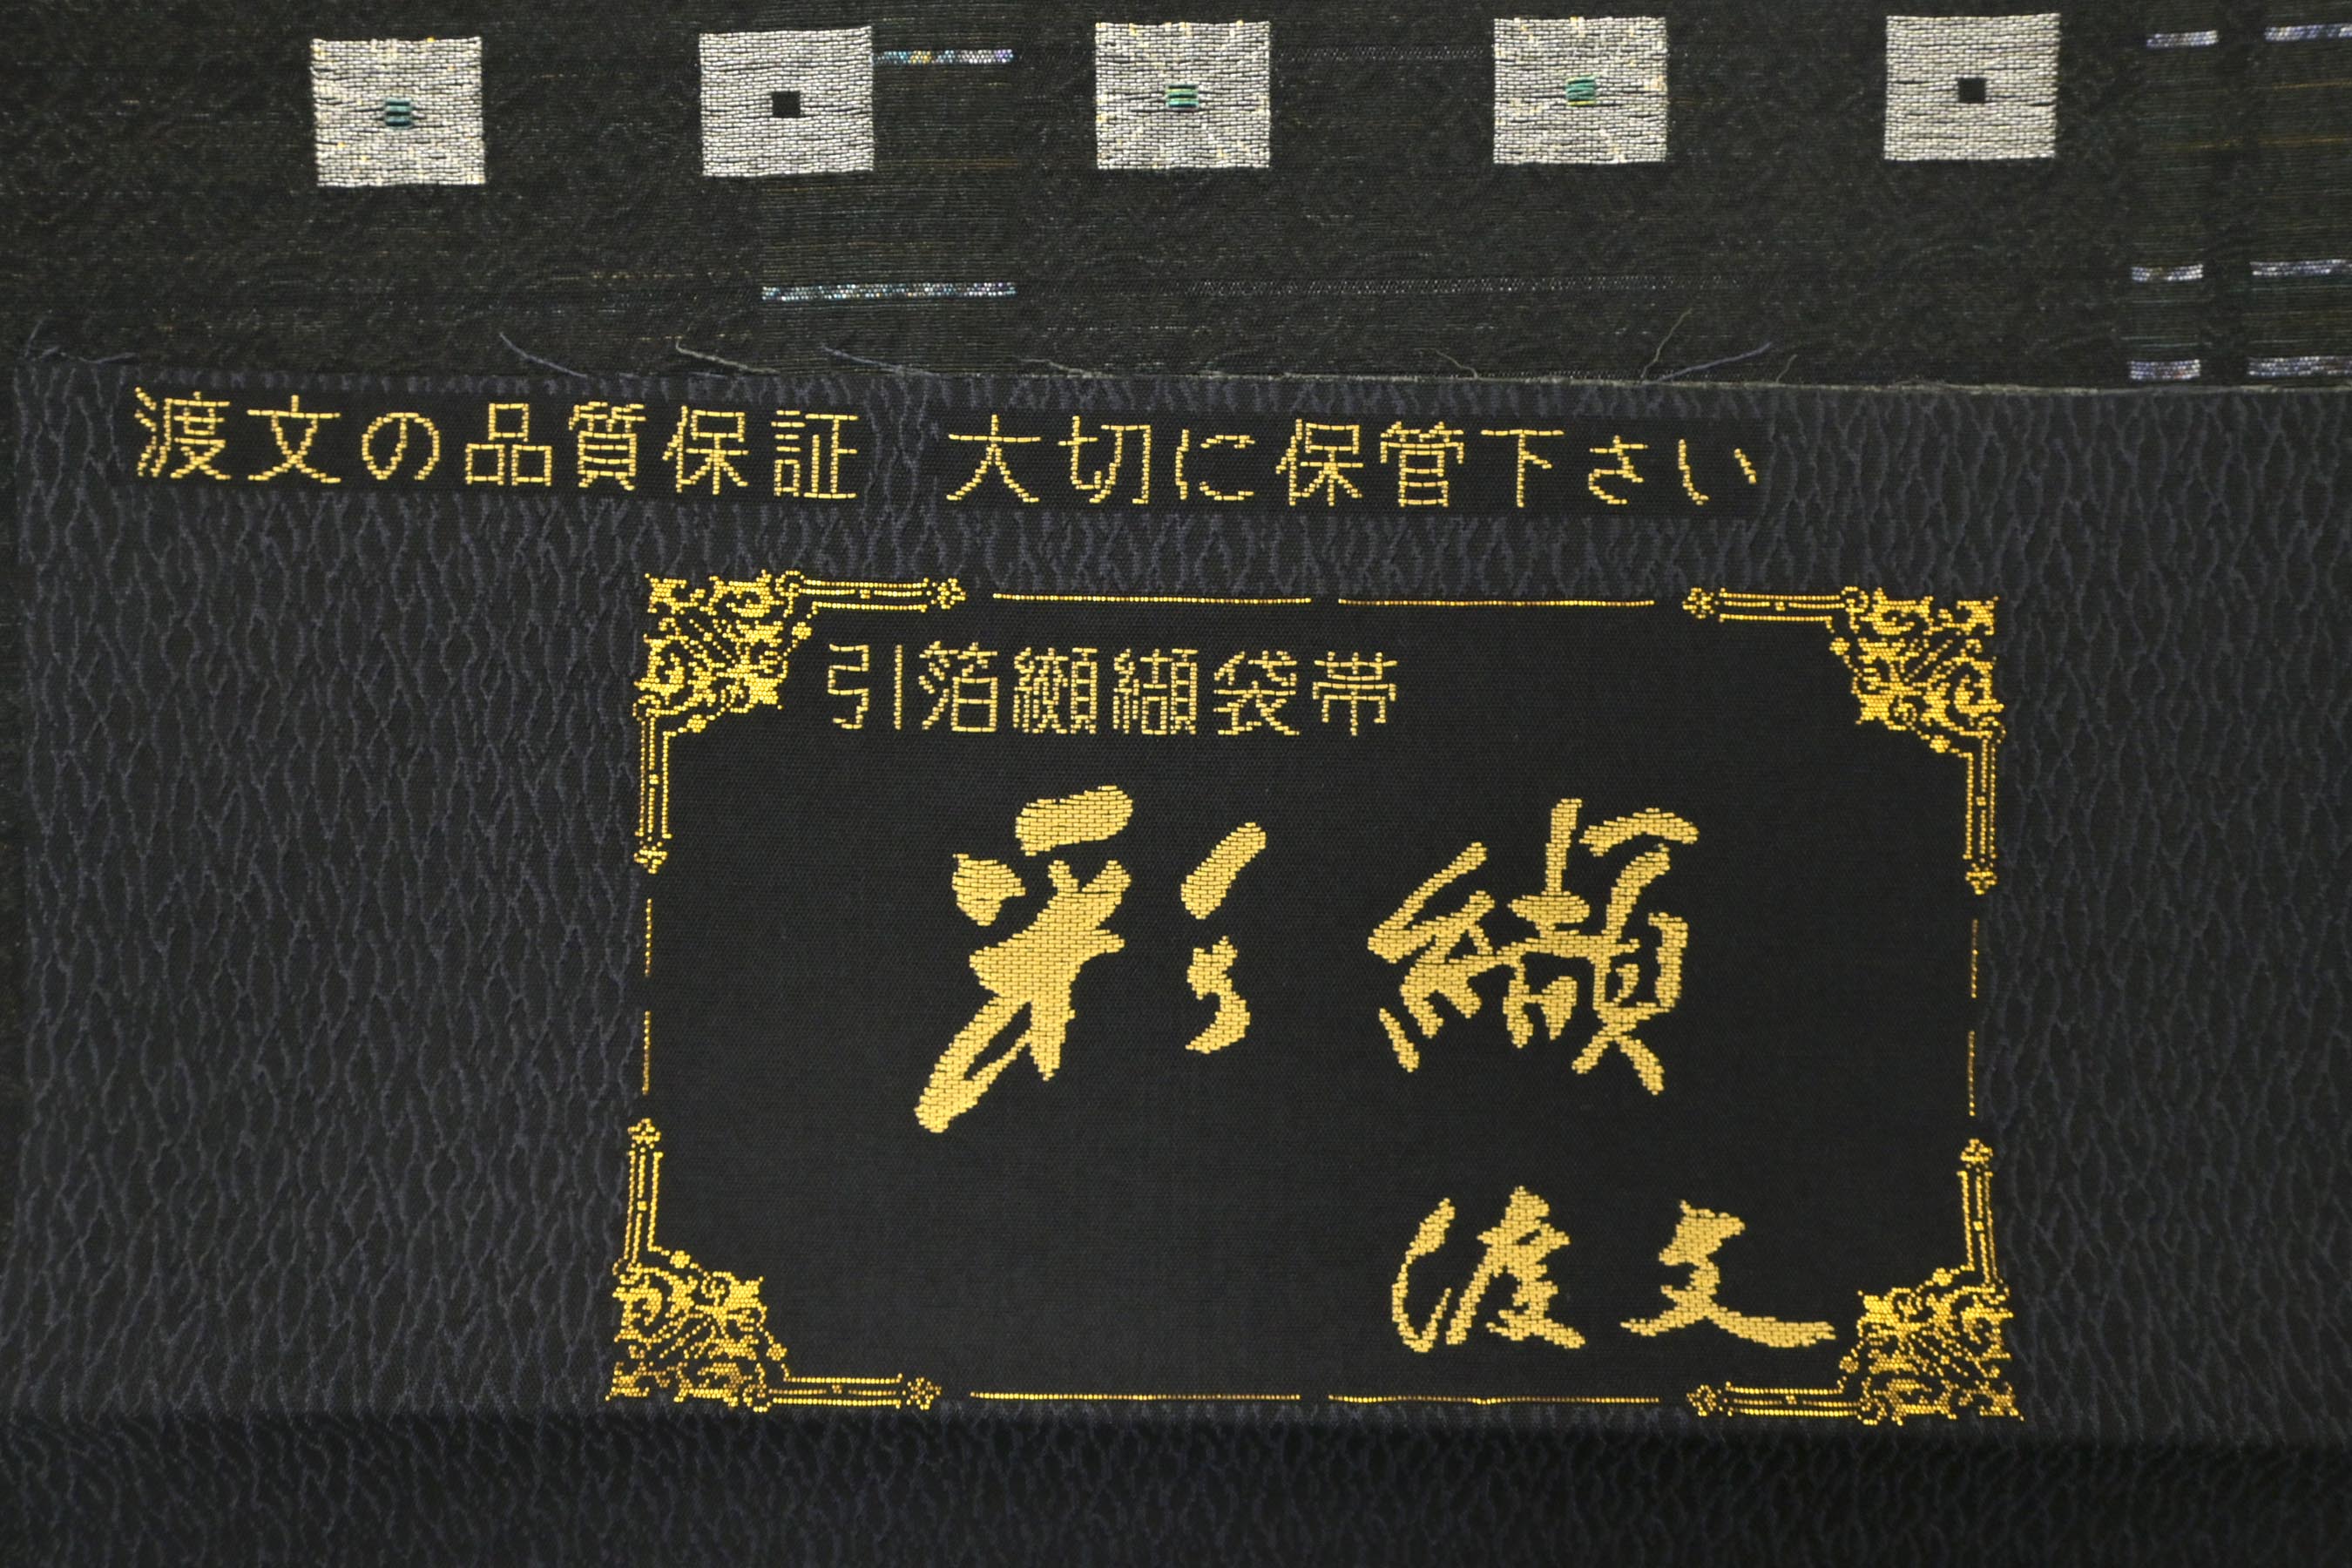 渡文の品質保証 大切に保管下さい
引箔纐纈袋帯
彩纈
渡文